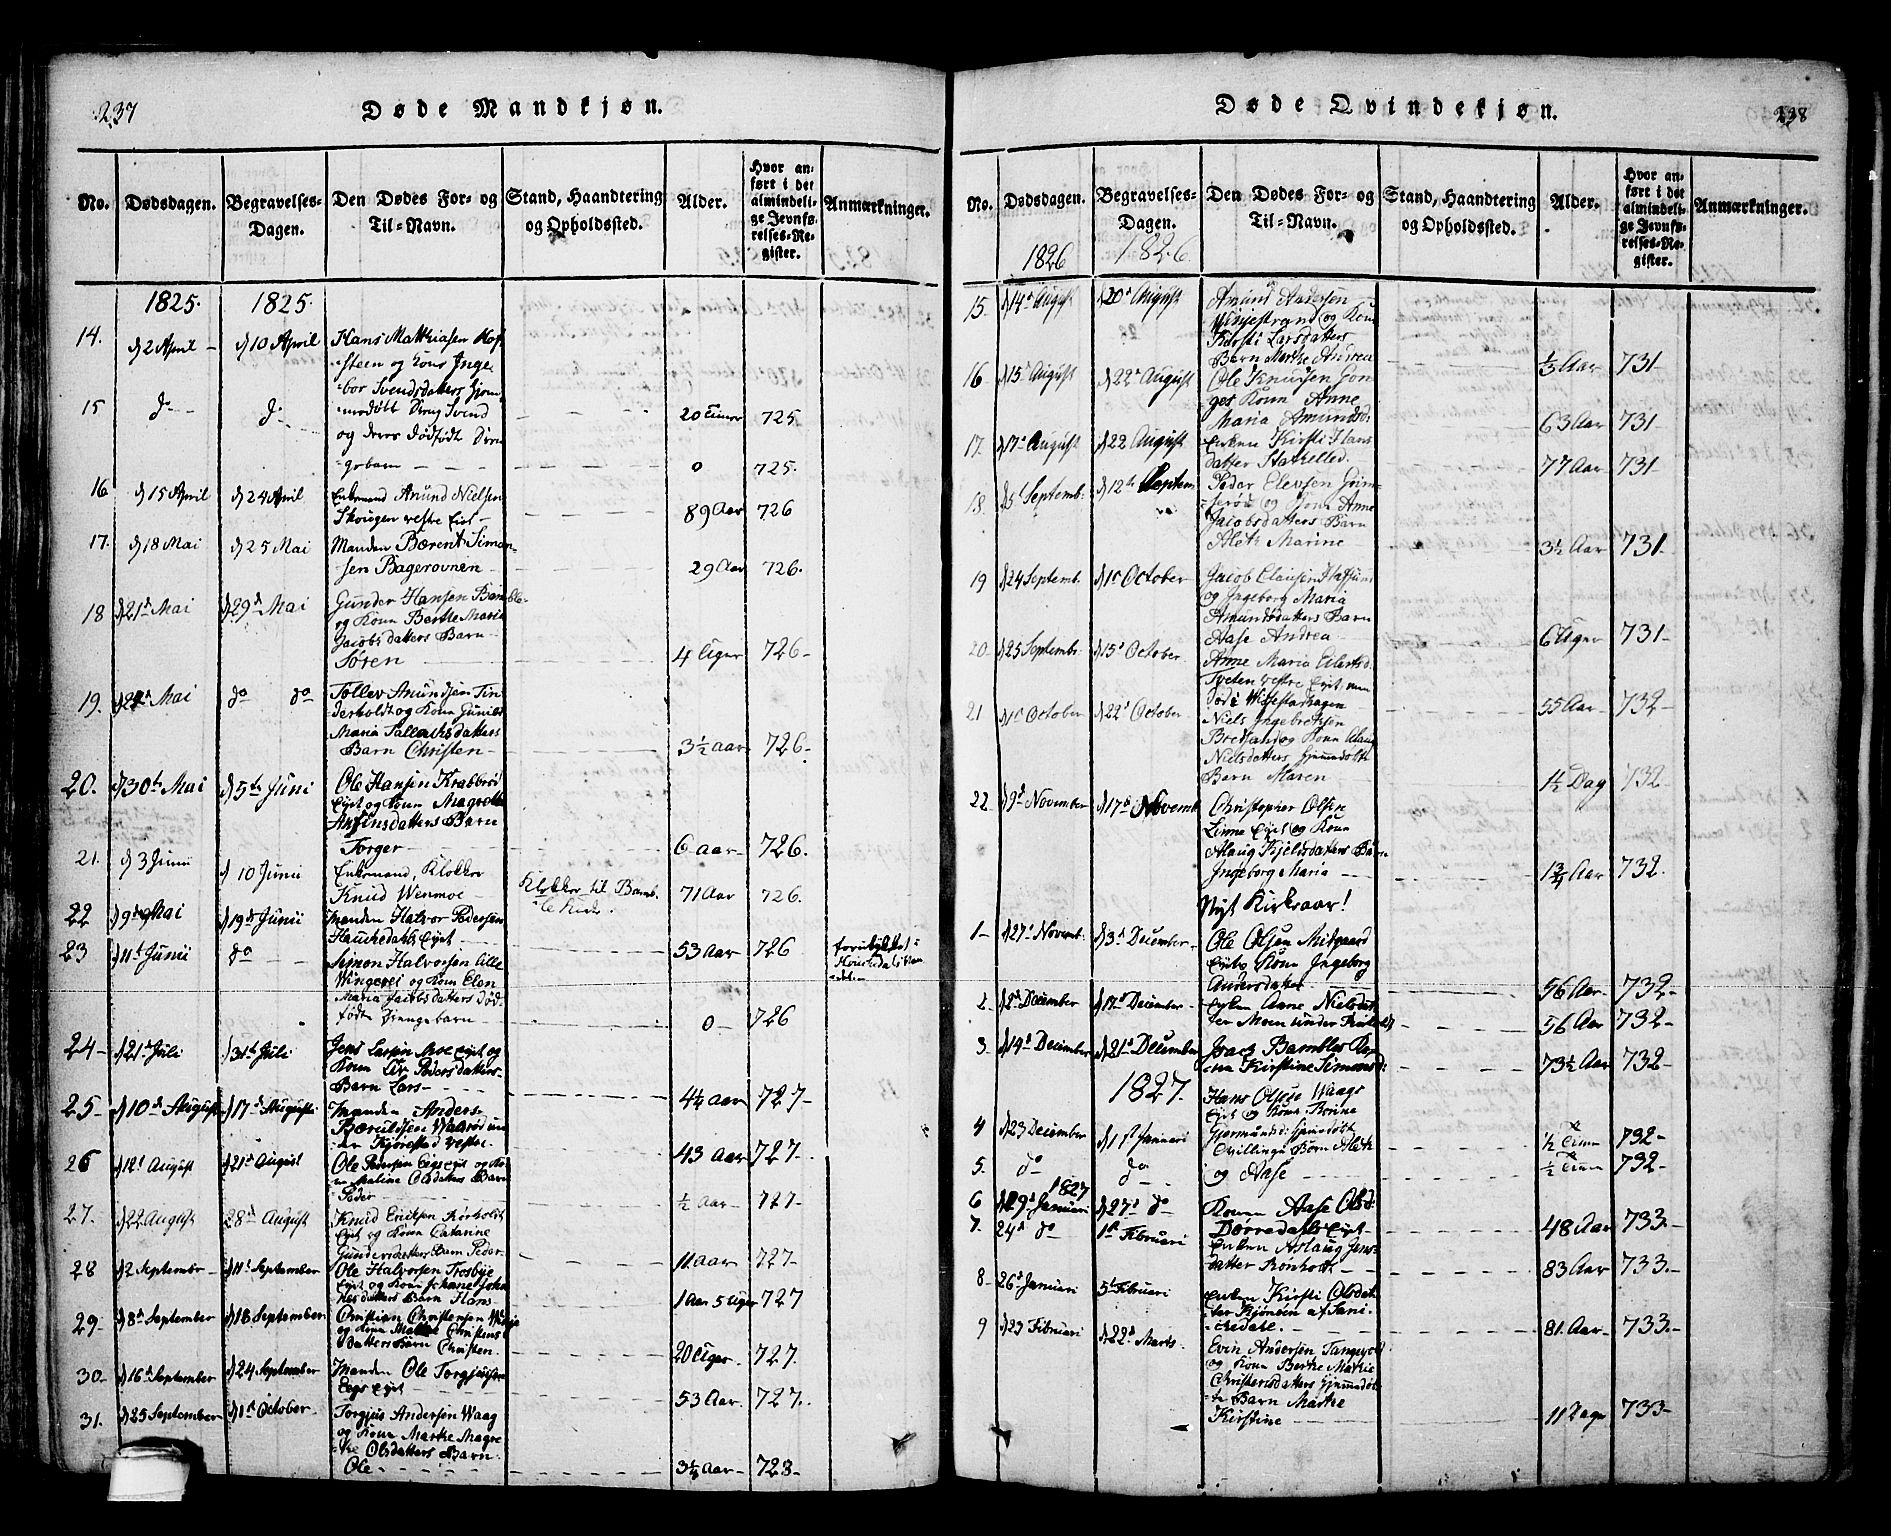 237
Døde Mandkjøn.
No.
Dødsdagen.
Begravelses-Dagen.
Den Dødes For- og Til-Navn.
Stand, Haandtering og Opholdssted.
Alder.
Hvor anført i det almindelige Jevnførelses-Register.
Anmærkninger.
1825. 1825.
14. d 2 April - d 10 April Hans Matthiasen
-steen og Kone Inge-
bor Svendsdatters Hjem-
mødøbt Dreng Svend 20 Timer 725
15 do do
og deres dødfødt Dren-
gebarn 0 725.
16 d 15 April d 24 April Enkemand Amund Nielsen
Skougen vestre Eiet 89 Aar 726
17. d 18 Mai d 25 Mai Manden Bærent Simon-
sen Bagerovnen 29 Aar 726.
18 d 21d Mai d 29d Mai Gunder Hansen Bamble
og Kone Berthe Maria
Jacobsdatters Barn
Søren 4 Uger 726-
19. d 21d Mai do do Tollev Amundsen Tin-
derholdt og Kone Gunild
Maria
Barn Christen 3½ aar 726-
20. d 30te Mai d 5te Juni Ole Hansen Krabberød
Eiet og Kone Magrethe
Anfinsdatters Barn
Torger 6 aar 726.
21. d 3 Junii d 10 Junii Enkemand, Klokker
Knud Wenmoe Klokker til Bamb-
le Kirke. 71 Aar 726.
22 d 9de Mai d 19de Junii Manden Halvor Pedersen
Haukedals Eiet 53 Aar 726
23 d 11te Junii do Simon Halvorsen Lille
Wingerei og Kone Elen
Maria Jacobsdatters Død-
fødte Drengebarn 0 726
24- d 21d Juli d 31te Juli Jens Larsen Moe Eiet og
Kone Liv Pedersdatters
Barn Lars- 4¼ Aar 727-
25- d 10de August d 17de Augusti Manden Anders
Bærulfsen Waldrød un-
der Kjørestad vestre 43 Aar 727.
26 d 12te August d 21de August Ole Pedersen Eigs Eiet og Ko-
ne Maline Olsdatters Barn
Peder ½ Aar 727-
27. d 22 August 28de August Knud Eriksen Kørholdt
Eiet og Kone Catarine
Gundersdatters Barn Peder 11 Aar 727
28 d 2 September d 11te September Ole Halvorsen Trosbye
Eiet og Kone Johane Johan-
nesdatters Barn Hans 1 Aar 5 Uger 727
29- d 8de September d 18 September Christian Christensen
og Kone Marthe Christens
datters Barn Christen. 20 Uger 727.
30- d 16de September d 24 September Manden Ole Torgjusen
Eigs Eiet 53 Aar 727.
31. d 25 September d 1ste October Torgjus Andersen Waag
og Kone Marthe Magre-
the Olsdatters Barn
Ole 3¼ Aar 728-
238
Døde Qvindekjøn.
No.
Dødsdagen.
Begravelses-Dagen.
Den Dødes For- og Til-Navn.
Stand, Haandtering og Opholdssted.
Alder.
Hvor anført i det almindelige Jevnførelses-Register.
Anmærkninger.
1826 1826
15. d 14d August d 20d August Amund Andersen
Wisjestrand og Kone
Kirsti Larsdatters
Barn Marthe Andrea ⅓ Aar 731
16 d 15d August d 22d August Ole Knudsen Gon-
ges Kone Anne
Maria Amundsd: 63 Aar 731
17. d 17d August d 22 August Enken Kirsti Hans
datter Stathelled. 77 Aar 731-
18. d 5te Septemb: d 12te Septem. Peder Elevsen
og Kone Anne
Jacobsdatters Barn
Aleth Marine 3½ Aar 731-
19 d 24 Septemb. d 1d October Jacob Clausen Hafsund
og Ingeborg Maria
Amundsdatters Barn
Aase Andrea 6 Uger 731-
20. d 25 Septembr. d 15d October Anne Maria Eilertsd.
Tveten vestre Eiet men
død i 55 Aar 732-
21 d 1d October d 22d October Niels Ingebretsen
Bredsand og Kone Alaug
Nielsdatters Hjemmedøbte
Barn Maren 1½ Dag 732
22. d 9d November d 17d Novemb. Christopher Olsen
Linne Eiet og Kone
Alaug Kjeldsdatters Barn
Ingeborg Maria 1¾ Aar 732.
Nyt Kirkeaar!
1- d 27d Novemb. d 3d December- Ole Olsen Midgaard
Eiets Kone Ingeborg
Andersdatter 56 Aar 732-
2. d 8d December d 17d December- Enken Anne Nielsdat-
ter Moen under 56 Aar 732-
3- d 14d December d 21d December Isach Bambles Ko-
ne Kirstine Simonsd: 73½ Aar 732-
1827. Hans Olsen Waags
Eiet og Kone Karine
4 d 23 December d 1ste Januari Gjermundsd: Hjemmedøbt
Tvillinge Børn Aleth ½ Time 732-
5. do do og Aase ½ Time 732-
1827
6 d 19d Januari d 27d do Konen Aase Olsd.
Dørredals Eiet 48 Aar 733.
7. 24d do 1ste Februari Enken Aslaug Jens-
datter Rønholt 83 Aar 733.
8- 26d Januari 5te Februari Enken Kirsti Olsdat-
ter Kjønøen af Sani-
credale. 81 Aar 733.
9 d 23 Februari d 22d Marts. Even Andersen Tangvald
og Kone Berthe Mathie
Christensdatters Hjemmedøb-
te Barn Marthe
Kirstine 11 Dage 733-